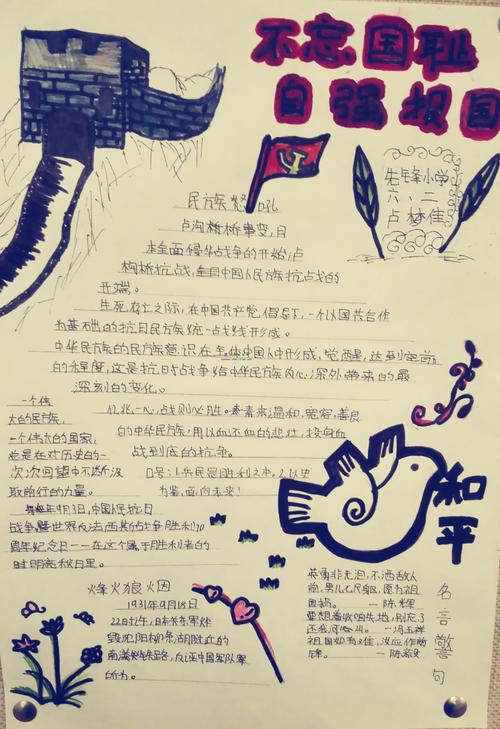 不忘国耻
自强报国
先锋小学
六、二
卢梦佳
民族怒吼
卢沟桥事变,日
本全面侵华战争的开始,卢
构桥抗战,是中国人民族抗占战的
开端。
生死存亡之际,在中国共产党倡导下,一个以国共合作
为基础的抗日民族统一战线形成。
中华民族的民族意识在全体中国人中形成,觉醒,达到空前
的程度,这是抗日战争给中华民族内心深处带来的最
深刻的变化。
亿兆一心,战则必胜。素来温和,宽容,善良
的中华民族,用以血不血的悲壮,
战到底的抗争。
一个伟
大的民族,
一个伟大的国家,
总是在对历史的一
次次回望中不断汲
取前行的力量。
兵民是胜利之本。以史
为鉴,面向未来!
9月3日,中国人民抗日
战争暨世界反法西斯战争胜利70
周年纪念日——在这个属于胜利者的
时明亮秋日里。
烽火狼烟
1931年9月18日
22日许,日本关东军炸
毁沈阳柳条湖附近的
南满铁路,反诬中国军队
所为。
和平
名言警句
英勇非无泪,不洒敌人
前,男儿七尺躯,愿为祖
国捐。 —陈辉
要想着收失地,别忘了
还我河山。 —冯玉祥
祖国如有难,汝应作前
锋。 —陈毅